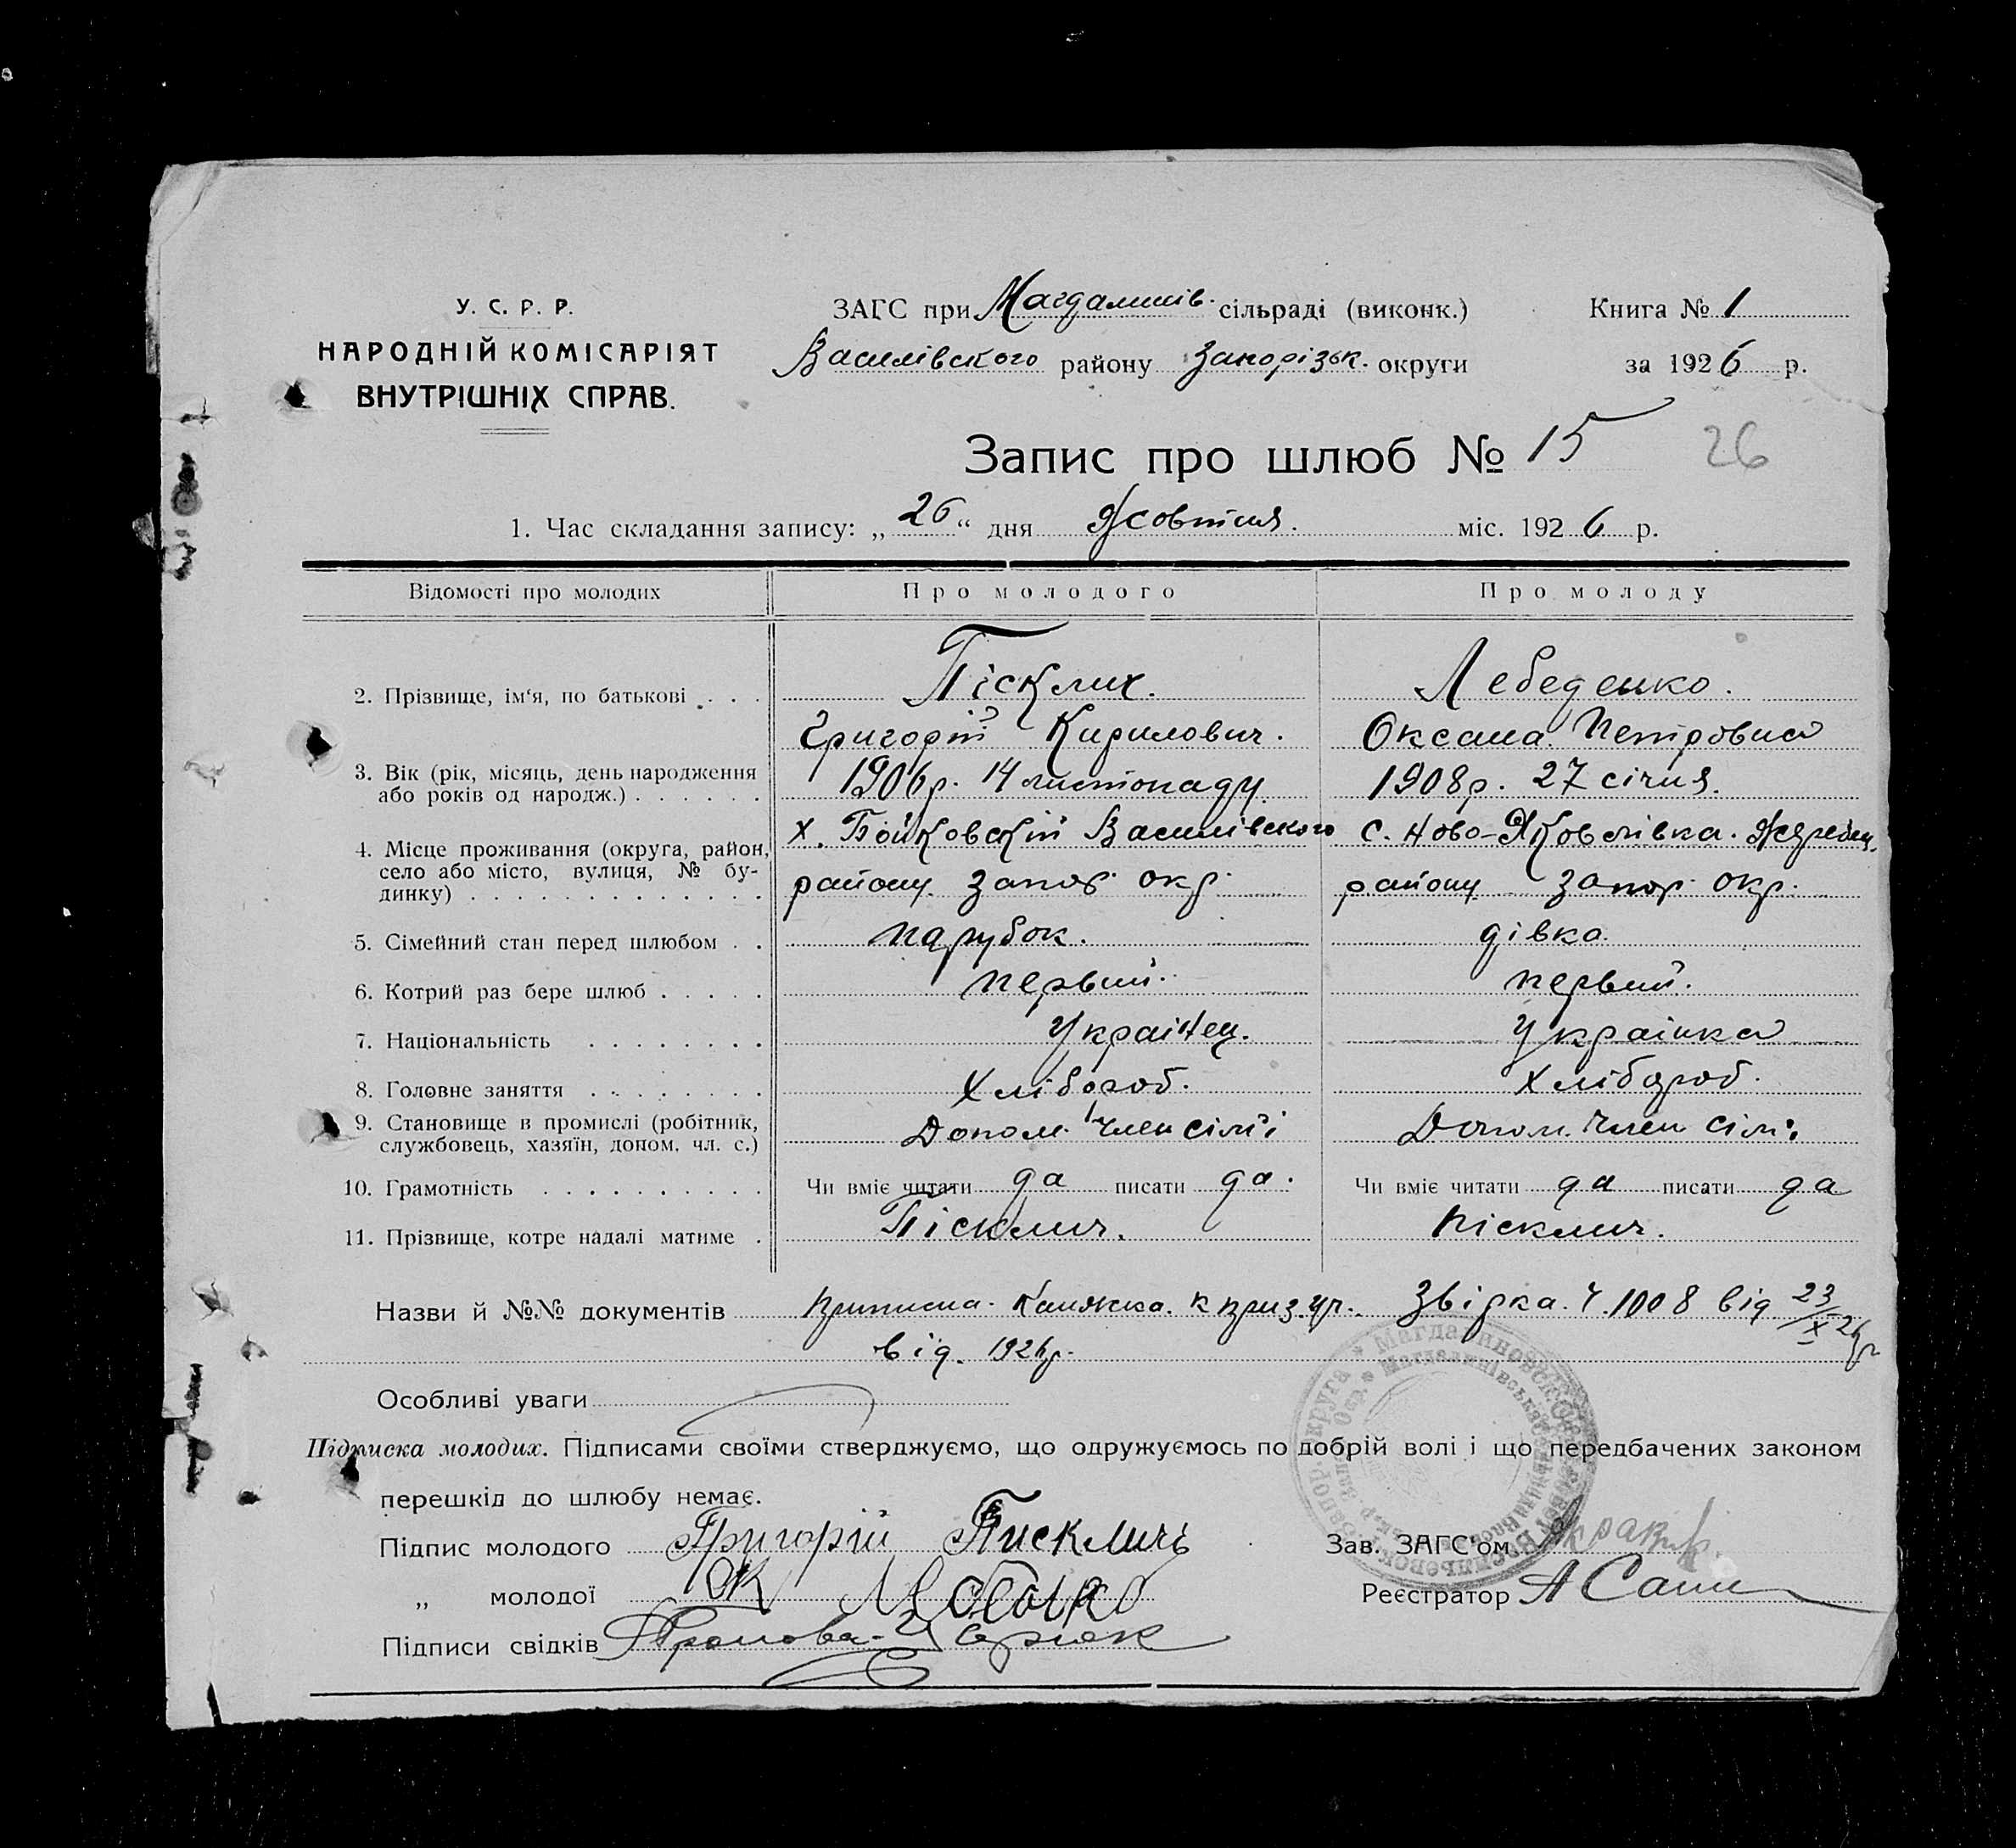 У. С. Р. Р.
НАРОДНІЙ КОМІСАРІЯТ
ВНУТРІШНІХ СПРАВ.
ЗАГС при Магдалинів. сільраді (виконк.)
Василівского району Запорізьк. округи
Книга № 1
за 1926 р.
Запис про шлюб № 15
26
1. Час складання запису: „26“ дня Жовтня. міс. 1926 р.
Відомості про молодих
Про молодого
Про молоду
2. Прізвище, ім‘я, по батькові . . .
Пісклич.
Лебеденко.
Григорій Кирилович.
Оксана Петровна
3. Вік (рік, місяць, день народження
або років од народж.) . . . . . .
1906р. 14 листопаду
1908р. 27 січня.
4. Місце проживання (округа, район,
село або місто, вулиця, № бу-
динку) . . . . . . . . . . . . .
х. Бойковский Василівского
району Запор. окр.
с. Ново-Яковлівка. Жеребец.
району Запор. окр.
5. Сімейний стан перед шлюбом . .
парубок.
дівка.
6. Котрий раз бере шлюб . . . . .
первий.
первий.
7. Національність . . . . . . . .
Украінец.
Украінка
8. Головне заняття . . . . . . . .
Хлібороб.
Хлібороб.
9. Становище в промислі (робітник,
службовець, хазяїн, допом. чл. с.)
Допом. член сімʼі
Допом. член сімʼі
10. Грамотність . . . . . . . . . .
Чи вміє читати да писати да.
Чи вміє читати да писати да
11. Прізвище, котре надалі матиме .
Пісклич.
Пісклич.
Назви й №№ документів приписна. Книжка. к приз. Звірка. Ч. 1008 від 23/X 26р
від. 1926р.
Особливі уваги
Підписка молодих. Підписами своїми стверджуємо, що одружуємось по добрій волі і що передбачених законом
перешкід до шлюбу немає.
Підпис молодого Григорій Пискличь
„ молодої ОК
Підписи свідків
Зав. ЗАГС'ом
Реєстратор А